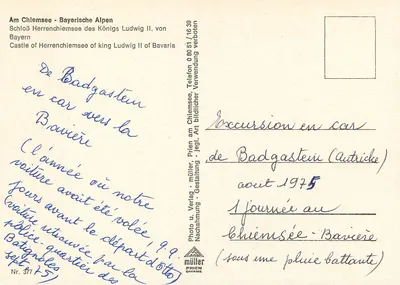 Am Chiemsee - Bayerische Alpen
Schloß Herrenchiemsee des Königs Ludwig II. von
Bayern
Castle of Herrenchiemsee of king Ludwig II of Bavaria
De Badgastein
en car vers la
Bavière
(l'année où notre
voiture avait été volée, qq.
jours avant le départ
Voiture retrouvée par la
police, quartier des
Batignolles
sept 75)
Nr. 371
Photo u. Verlag - müller, Prien am Chiemsee, Telefon 0 80 51 / 16 39
Nachahmung - Gestaltung - jegl. Art bildlicher Verwendung verboten
müller
PRIEN
Excursion en car
de Badgastein (Autriche)
aout 1975
1 journée au
Chiemsée - Bavière
(sous une pluie battante)